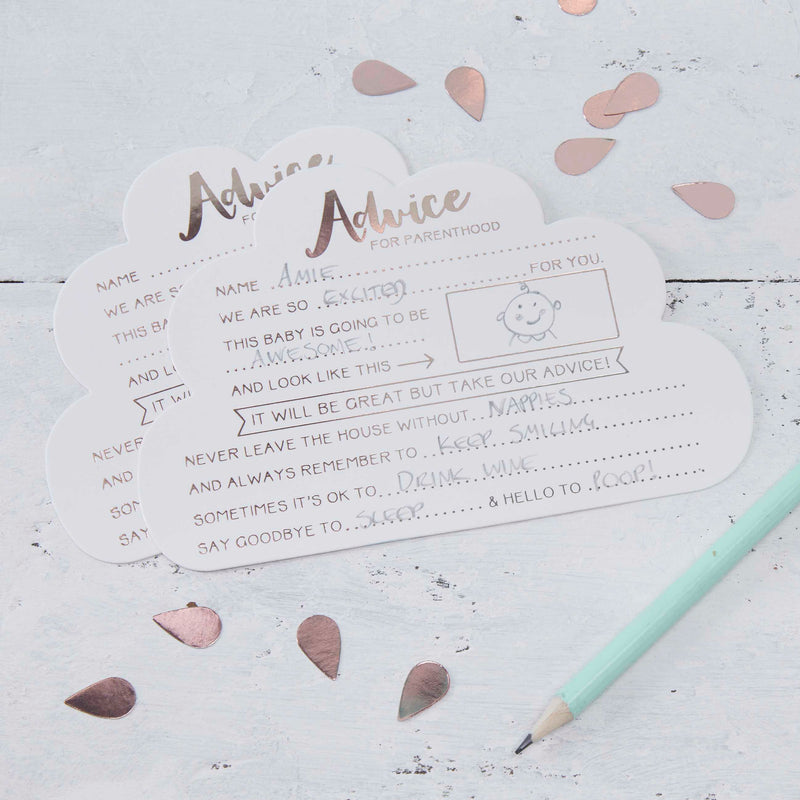 Advice
FOR PARENTHOOD
NAME AMIE
WE ARE SO EXCITED FOR YOU.
THIS BABY IS GOING TO BE
AWESOME!
AND LOOK LIKE THIS
IT WILL BE GREAT BUT TAKE OUR ADVICE!
NEVER LEAVE THE HOUSE WITHOUT NAPPIES
AND ALWAYS REMEMBER TO KEEP SMILING
SOMETIMES IT'S OK TO DRINK WINE
SAY GOODBYE TO SLEEP & HELLO TO POOP!
Advice
FO
NAME
WE ARE SO
THIS BA
AND LO
IT WI
NEVER
AND
SOM
SAY